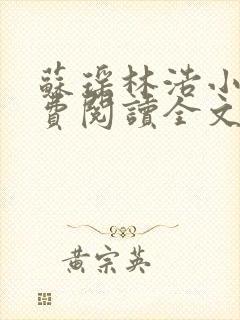 蘇瑶林浩小
費閱讀全文
黃宗英